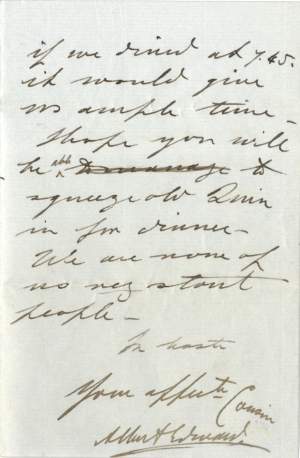 if we dined at 7.45.
it would give
us ample time –
I hope you will
be able to
squeeze old Quin
in for dinner –
We are none of
us very stout
people –
In haste
Your affect. Cousin
Albert Edward